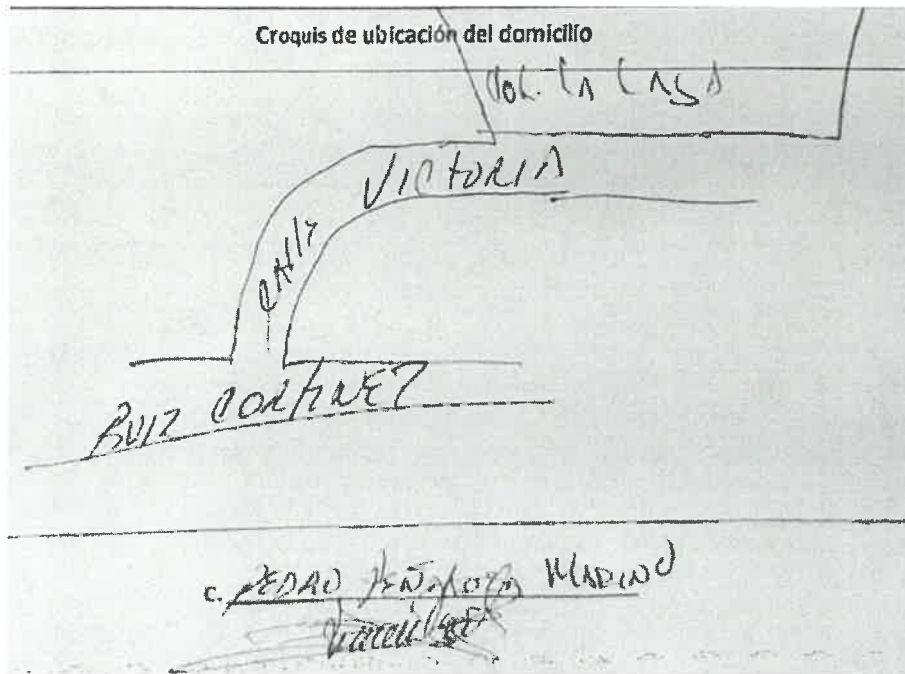 Croquis de ubicación del domicilio
Col. LA CASA
CALLE VICTORIA
RUIZ CORTINEZ
C. PEDRO PEÑALOZA MARINO